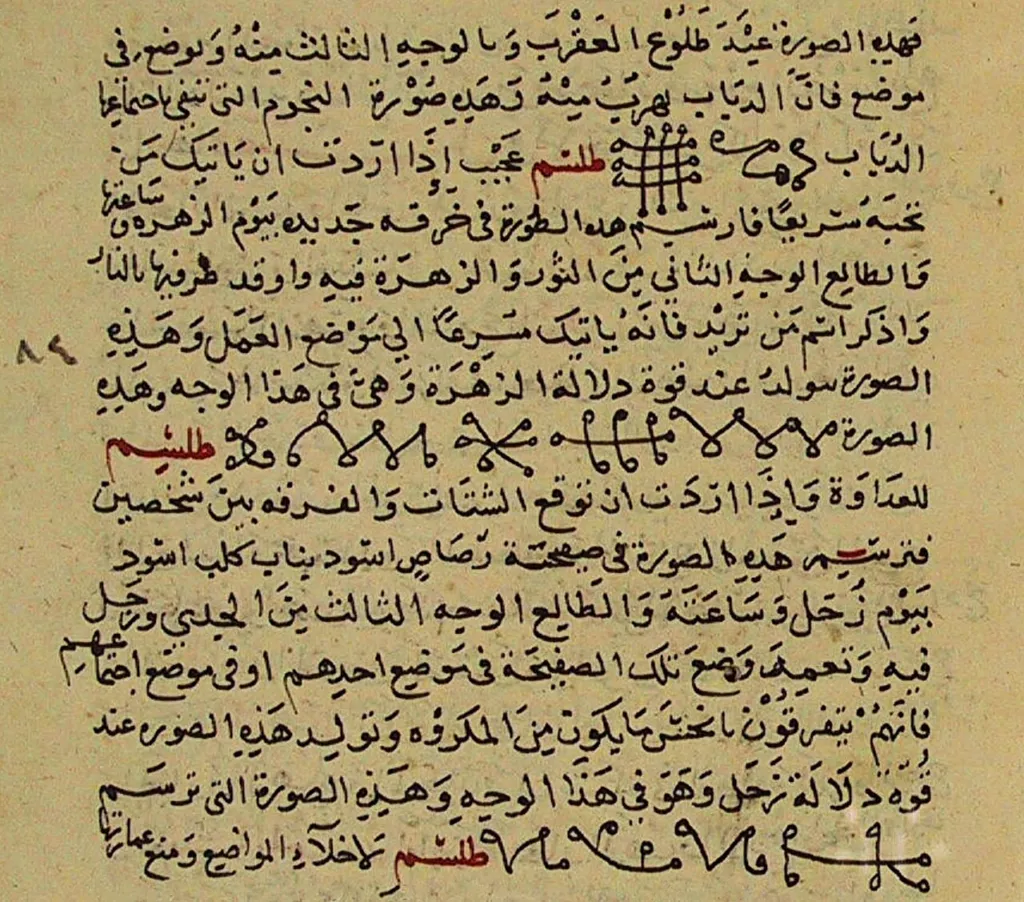 فهذه الصورة عند طلوع العقرب وبالوجه الثالث منه وتوضع في
موضع فان الذباب يهرب منه وهذه صورة النجوم التي تنفي باجتماعها
الذباب طلسم عجيب إذا اردت ان ياتيك من
تحبه سريعا فارسم هذه الصورة في خرقه جديده بيوم الزهره وساعتها
والطالع الوجه الثاني من الثور والزهرة فيه واوقد طرفيها بالنار
واذكر اسم من تريد فانه ياتيك مسرعا الي موضع العمل وهذه
الصورة تتولد عند قوة دلالة الزهرة وهي في هذا الوجه وهذه
الصورة طلسم
للعداوة وإذا اردت ان توقع الشتات والفرقه بين شخصين
فترسم هذه الصورة في صفيحة رصاص اسود بناب كلب اسود
بيوم زحل وساعته والطالع الوجه الثالث من الجدي وزحل
فيه وتضع تلك الصفيحة في موضع احدهم او في موضع اجتماعهم
فانهم يتفرقون ما يكون من المكروه وتوليد هذه الصوره عند
قوة دلالة زحل وهو في هذا الوجه وهذه الصورة التي ترسم
طلسم لاخلآء المواضع ومنع عمارتها
٨٤